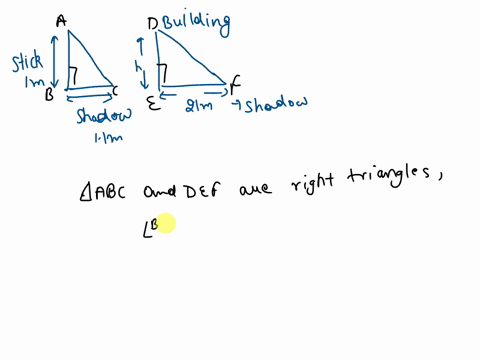 A
Stick
1m
B
C
Shadow
1.1m
D Building
h
E
21m
F
→ Shadow
△ABC and DEF are right triangles,
∠B